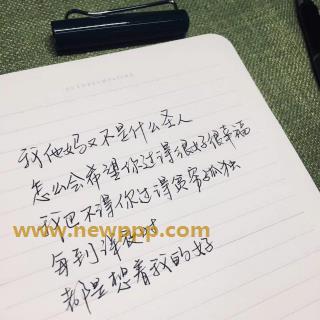 我他妈又不是什么圣人
怎么会希望你过得很好很幸福
我巴不得你过得贫穷孤独
www.newppp.com
每到深夜时
都是想着我的好